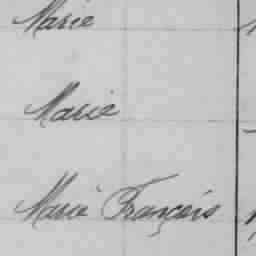 Marie
Marie
Marie François